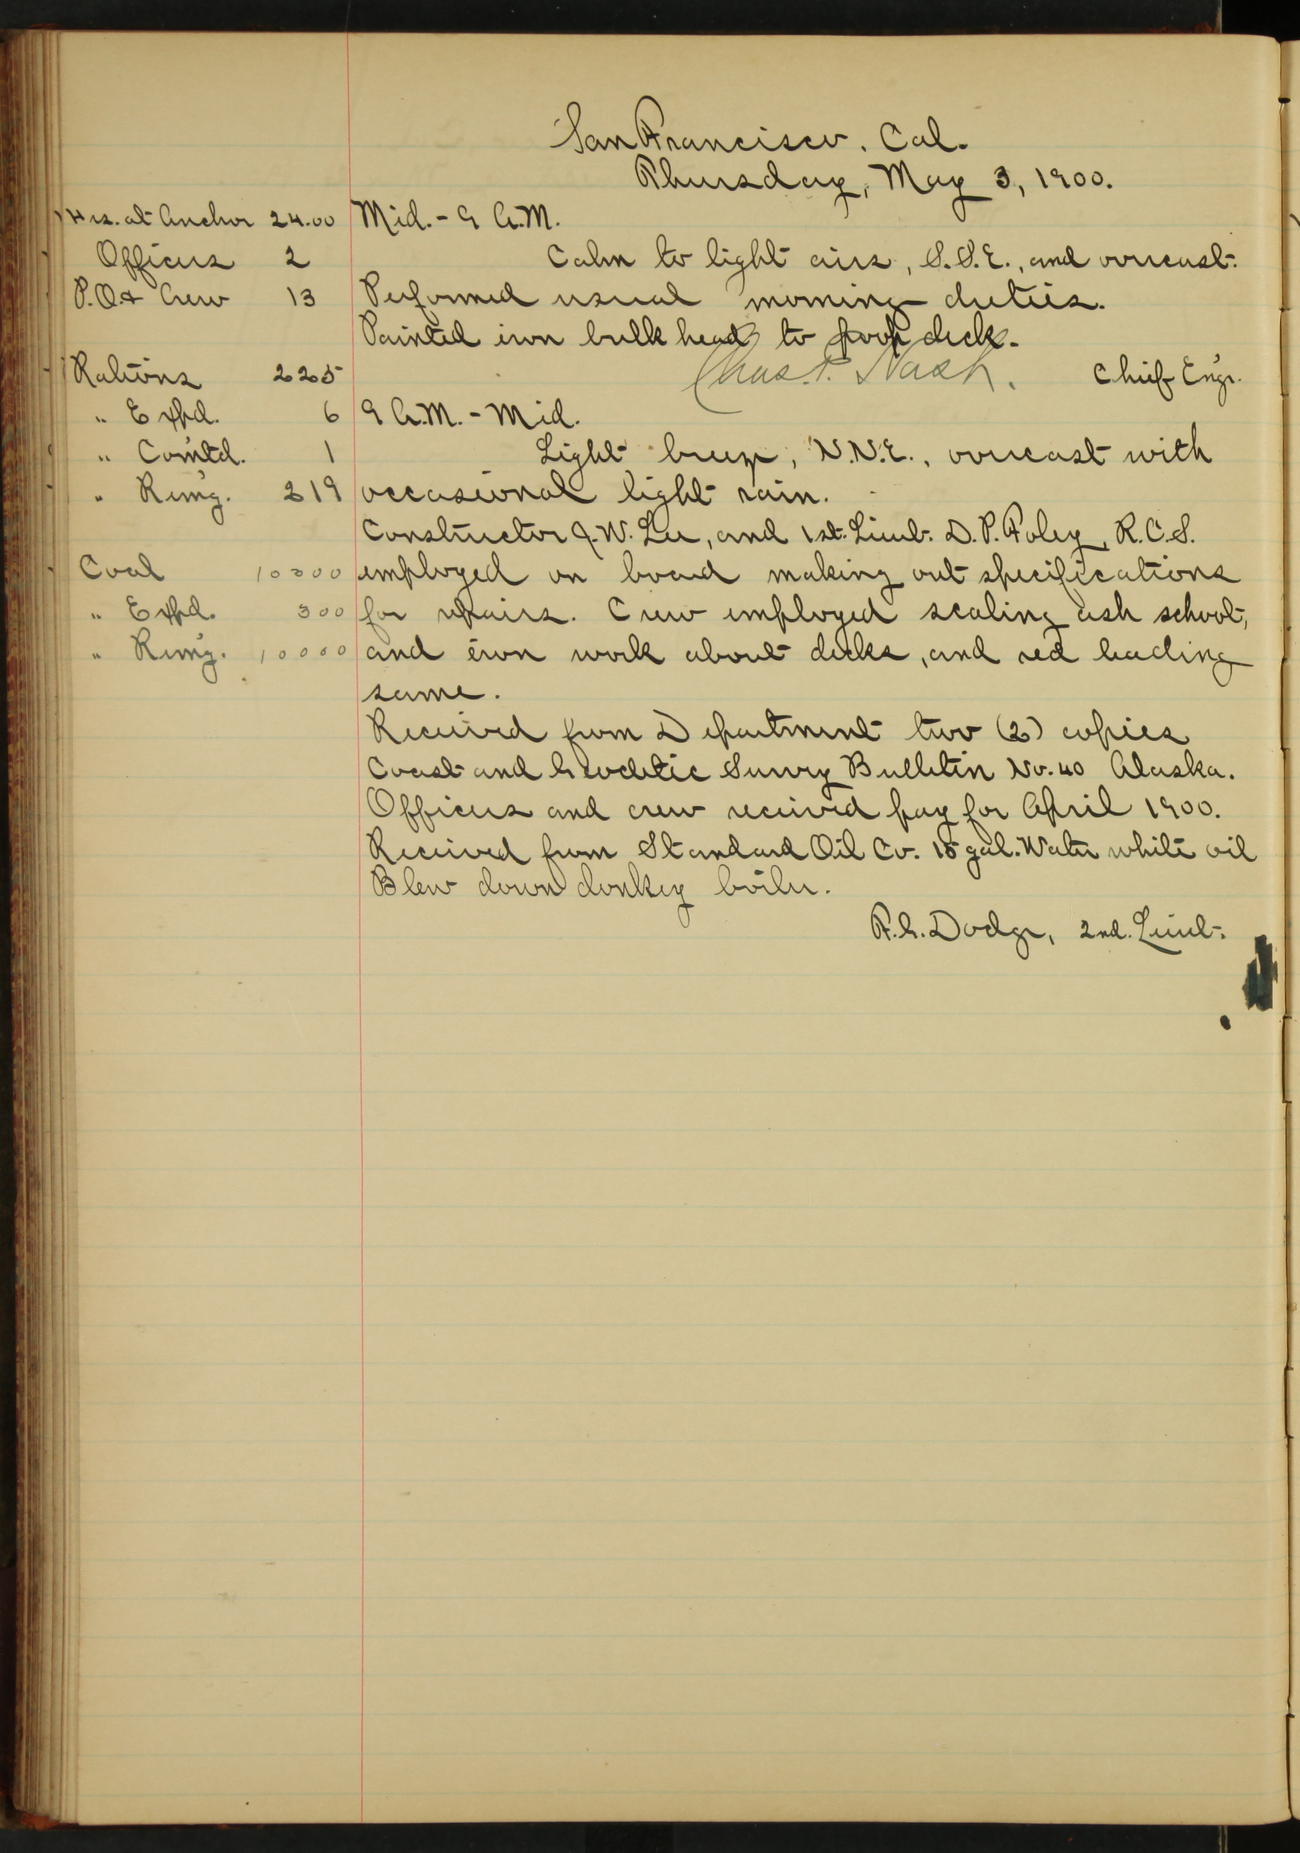 San Francisco, Cal.
Thursday, May 3, 1900.
Hrs. at Anchor 24.00
Officers 2
P.O. & Crew 13
Rations 225
" Exp'd. 6
" Com'td. 1
" Rem'g. 219
Coal 10300
" Exp'd. 300
" Rem'g. 10000
Mid. - 9 A.M.
Calm to light airs, S.S.E., and overcast.
Performed usual morning duties.
Painted iron bulk head to poop deck.
Chas. P. Nash. Chief Eng'r.
9 A.M. - Mid.
Light breeze, N.N.E., overcast with
occasional light rain.
Constructor J.W. Lee, and 1st. Lieut. D.P. Foley, R.C.S.
employed on board making out specifications
for repairs. Crew employed scaling ash school,
and iron work about decks, and red leading
same.
Received from Department two (2) copies
Coast and Geodetic Survey Bulletin No. 40 Alaska.
Officers and crew received pay for April 1900.
Received from Standard Oil Co. 15 gal. Water white oil
Blew down donkey boiler.
F.G. Dodge, 2nd. Lieut.